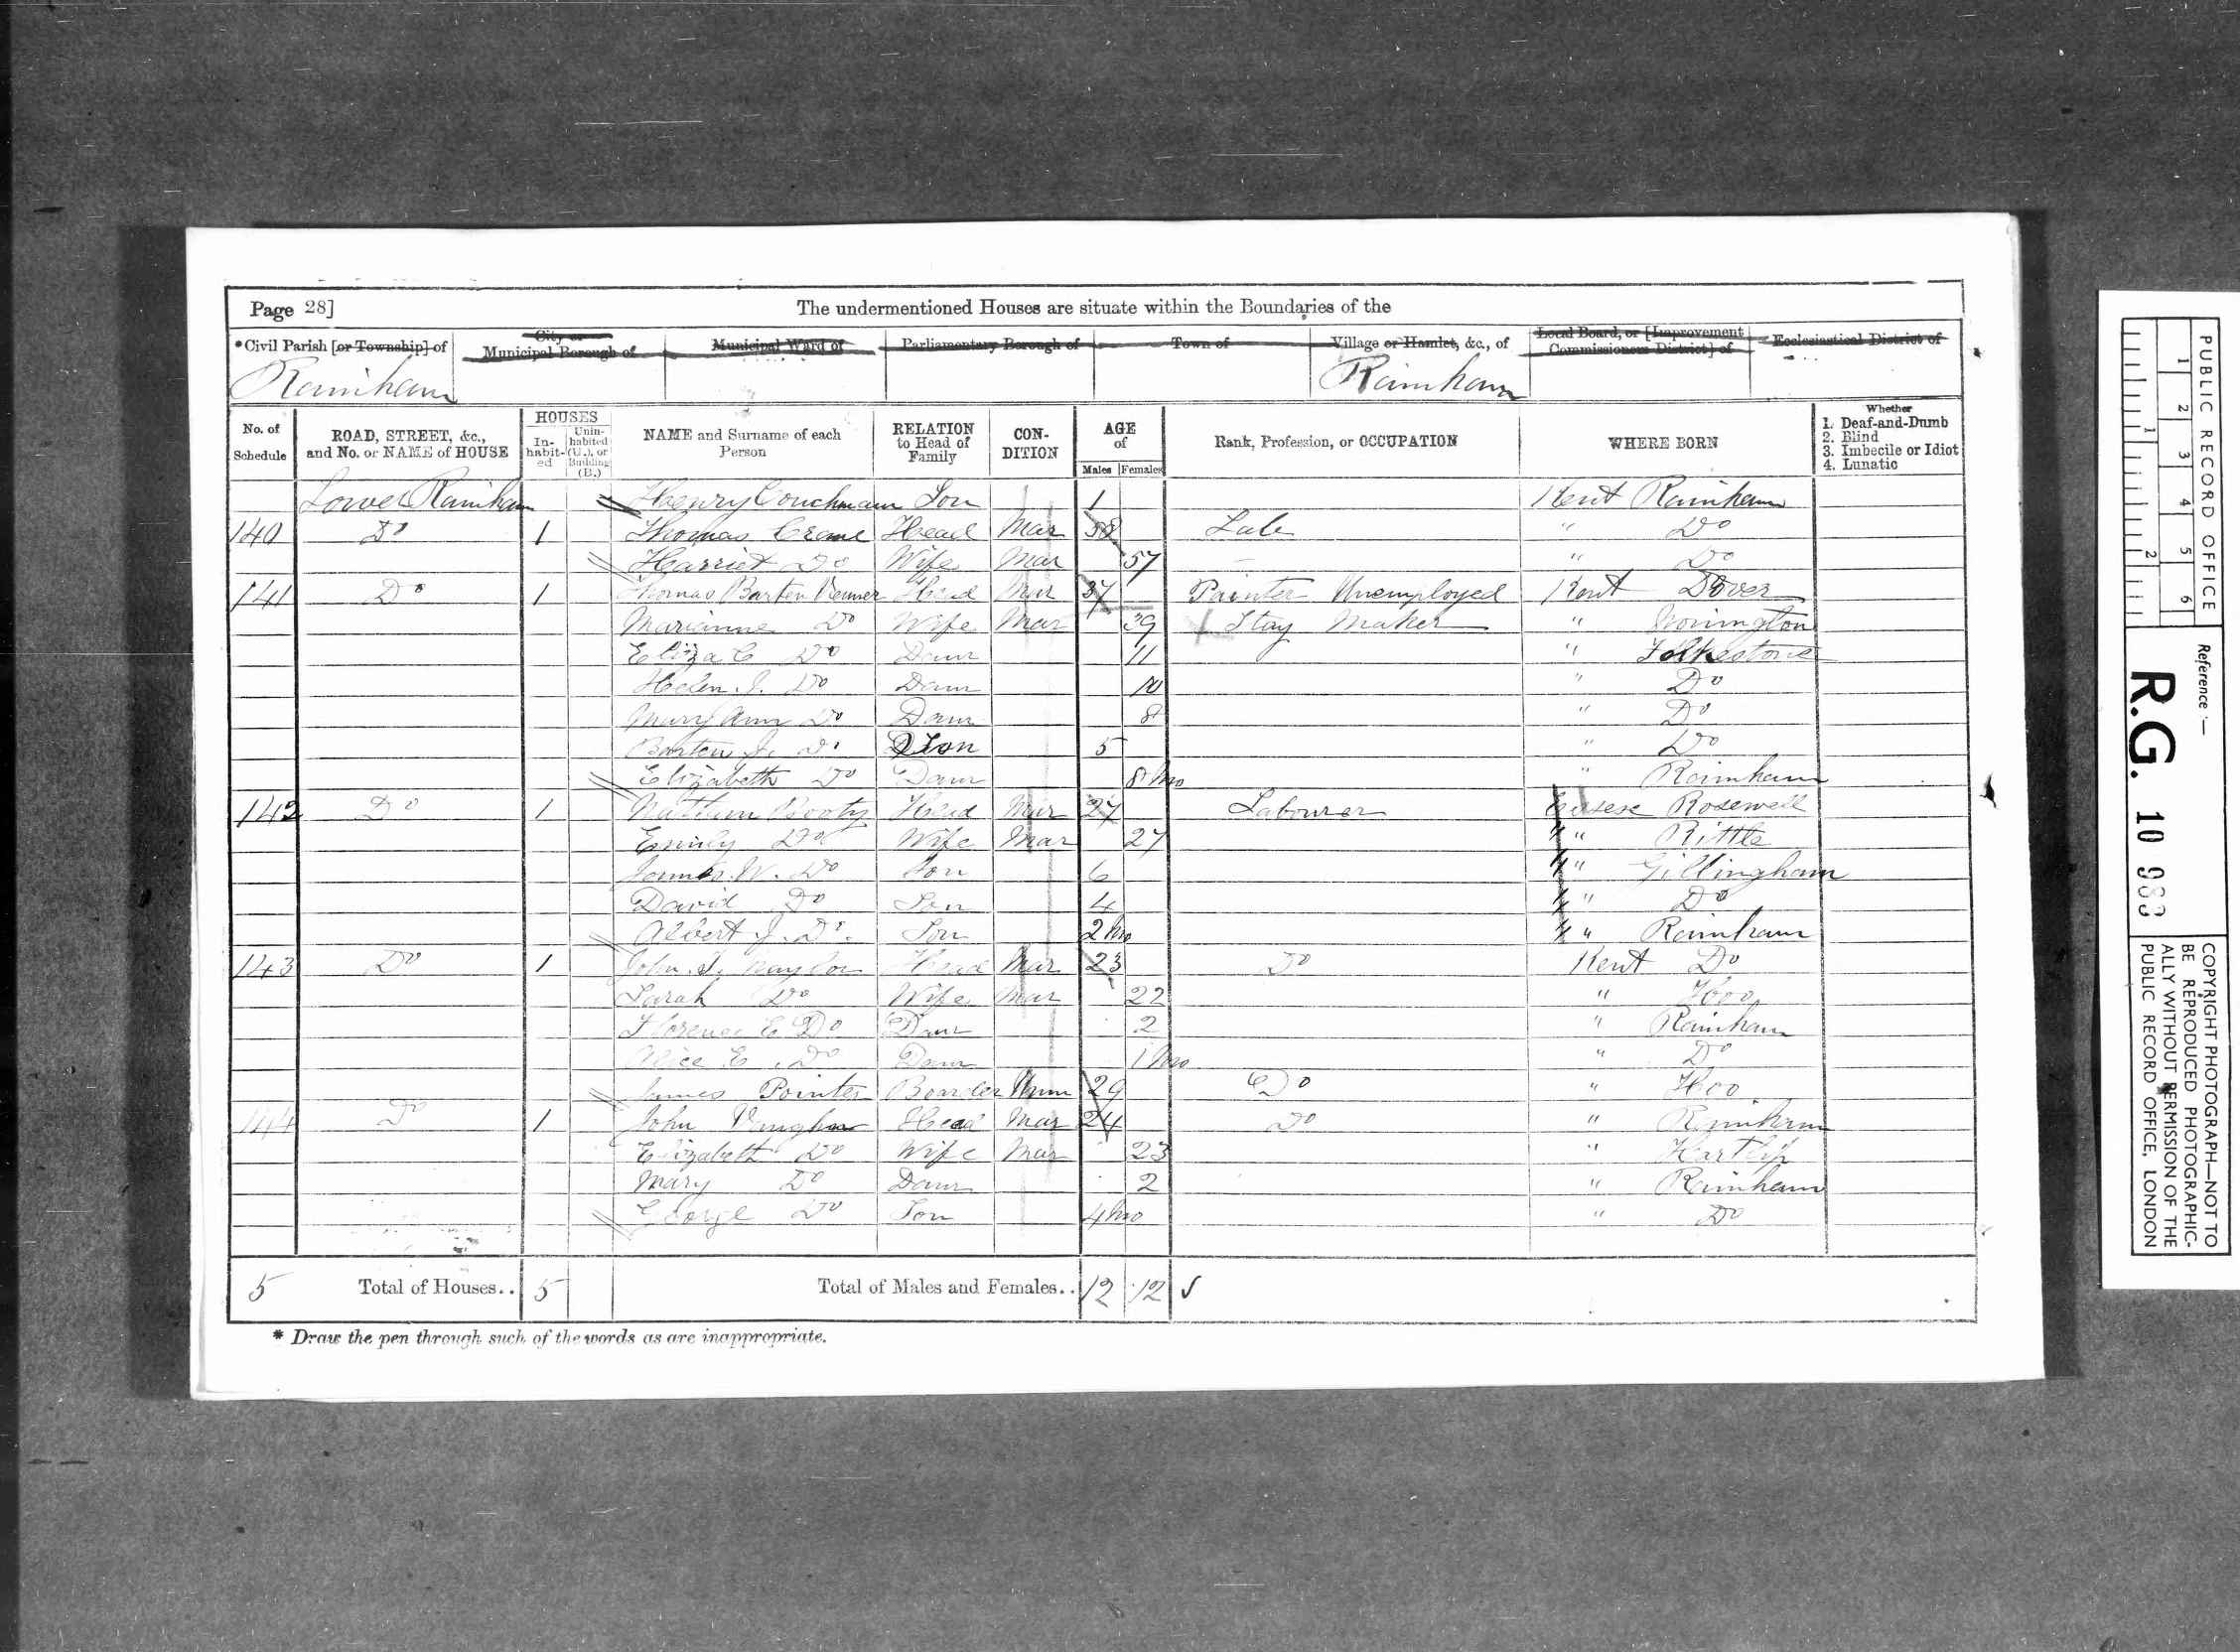 Page 28] The undermentioned Houses are situate within the Boundaries of the
*Civil Parish [or Township] of City or Municipal Borough of Municipal Ward of Parliamentary Borough of Town of Village or Hamlet, &c., of Local Board, or [Improvement Commissioners District] of Ecclesiastical District of
Rainham Rainham
No. of Schedule ROAD, STREET, &c., and No. or NAME of HOUSE HOUSES In-habit-ed Unin-habited (U.), or Building (B.) NAME and Surname of each Person RELATION to Head of Family CON-DITION AGE of Males Females Rank, Profession, or OCCUPATION WHERE BORN Whether 1. Deaf-and-Dumb 2. Blind 3. Imbecile or Idiot 4. Lunatic
Lower Rainham Henry Couchman Son 1 Kent Rainham
140 Do 1 Thomas Crane Head Mar 58 " Do
Harriet Do Wife Mar 57 " Do
141 Do 1 Thomas Barten Head Mar 37 Painter Unemployed Kent Dover
Marianne Do Wife Mar 39 Stay Maker "
Eliza C Do Daur 11 " Folkestone
Helen J. Do Daur 10 " Do
Mary Ann Do Daur 8 " Do
Barten J. Do Son 5 " Do
Elizabeth Do Daur 8 Mo " Rainham
142 Do 1 Booty Head Mar 27 Labourer Essex Rosewell
Emily Do Wife Mar 27 " Rittle
James W. Do Son 6 " Gillingham
David Do Son 4 " Do
Albert J. Do Son 2 Mo " Rainham
143 Do 1 John S. Naylor Head Mar 23 Do Kent Do
Sarah Do Wife Mar 22 " Hoo
Florence E Do Daur 2 " Rainham
Alice E. Do Daur 1 Mo " Do
James Pointer Boarder Unm 29 Do " Hoo
144 Do 1 John Vaughan Head Mar 24 Do " Rainham
Elizabeth Do Wife Mar 23 " Hartlip
Mary Do Daur 2 " Rainham
George Do Son 4 Mo " Do
5 Total of Houses.. 5 Total of Males and Females.. 12 12
* Draw the pen through such of the words as are inappropriate.
PUBLIC RECORD OFFICE
1 2 3 4 5 6
1 2
Reference :—
R.G. 10 983
COPYRIGHT PHOTOGRAPH—NOT TO
BE REPRODUCED PHOTOGRAPHIC-
ALLY WITHOUT PERMISSION OF THE
PUBLIC RECORD OFFICE, LONDON